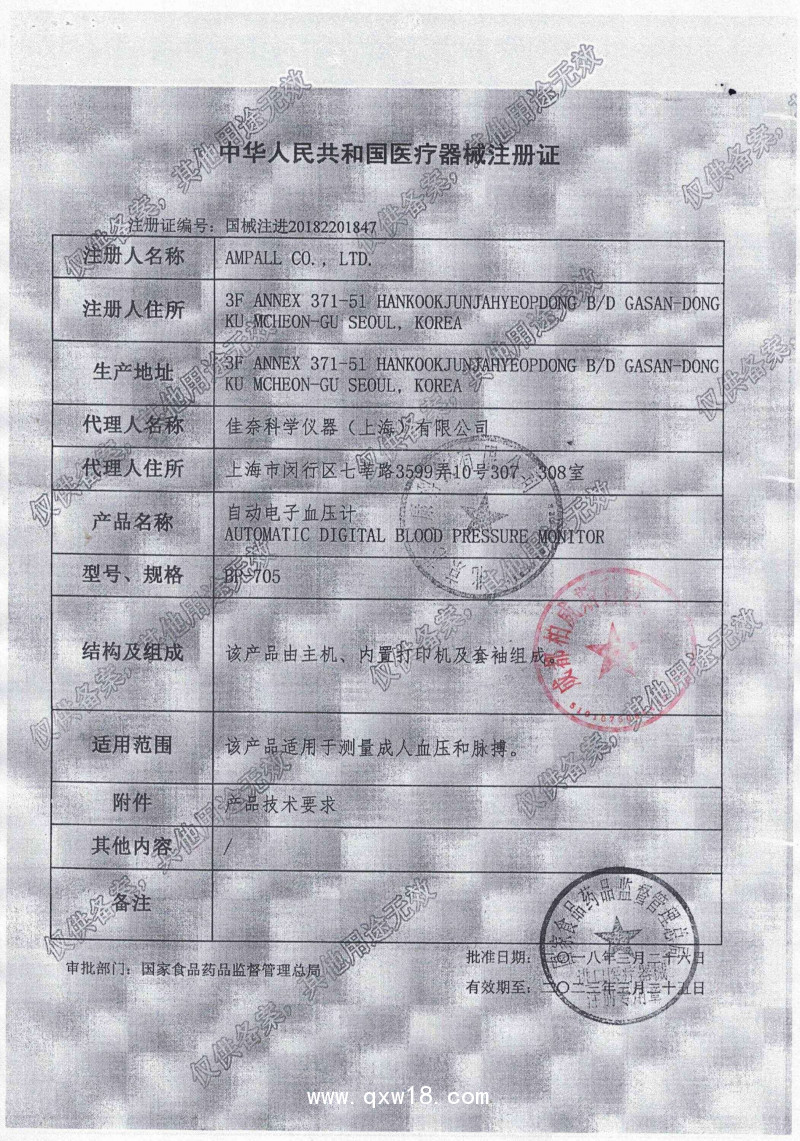 中华人民共和国医疗器械注册证
注册证编号：国械注进20182201847
注册人名称 AMPALL CO., LTD.
注册人住所 3F ANNEX 371-51 HANKOOKJUNJAHYEOPDONG B/D GASAN-DONG
KU MCHEON-GU SEOUL, KOREA
生产地址 3F ANNEX 371-51 HANKOOKJUNJAHYEOPDONG B/D GASAN-DONG
KU MCHEON-GU SEOUL, KOREA
代理人名称 佳奈科学仪器（上海）有限公司
代理人住所 上海市闵行区七莘路3599弄10号307、308室
产品名称 自动电子血压计
AUTOMATIC DIGITAL BLOOD PRESSURE MONITOR
型号、规格 BP-705
结构及组成 该产品由主机、内置打印机及套袖组成。
适用范围 该产品适用于测量成人血压和脉搏。
附件 产品技术要求
其他内容 /
备注
审批部门：国家食品药品监督管理总局
批准日期：二〇一八年三月二十六日
有效期至：二〇二三年三月二十五日
国家食品药品监督管理总局
进口医疗器械
注册专用章
仅供备案，其他用途无效
www.qxw18.com